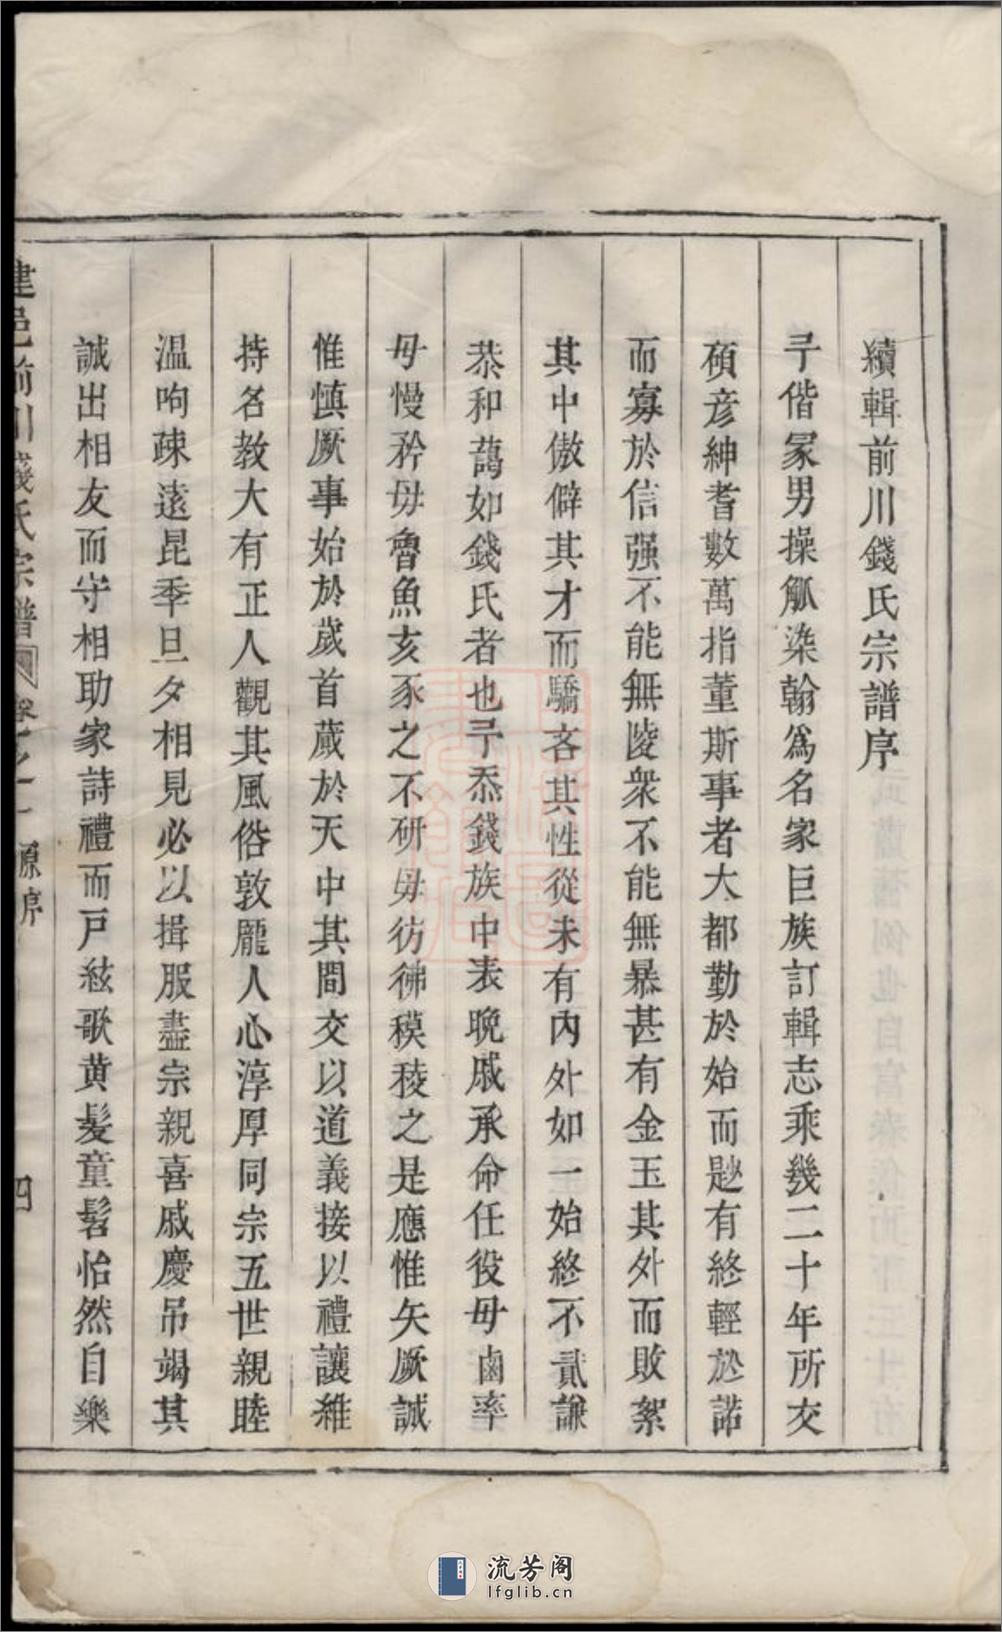 續輯前川錢氏宗譜序
予偕冢男操觚染翰爲名家巨族訂輯志乘幾二十年所交
碩彦紳耆數萬指董斯事者大都勤於始而尟有終輕於諾
而寡於信强不能無陵衆不能無暴甚有金玉其外而敗絮
其中傲僻其才而驕吝其性從未有内外如一始終不貳謙
恭和藹如錢氏者也予忝錢族中表晩戚承命任役毋鹵率
毋慢矜毋魯魚亥豕之不研毋彷彿稬稜之是應惟矢厥誠
惟慎厥事始於歲首蕆於天中其間交以道義接以禮讓維
持名教大有正人觀其風俗敦龎人心淳厚同宗五世親睦
温呴疎遠昆季旦夕相見必以揖服盡宗親喜戚慶吊竭其
誠出相友而守相助家詩禮而戸絃歌黄髮童髫怡然自樂
建邑前川錢氏宗譜 卷之一 源序 四
流芳阁
lfglib.cn